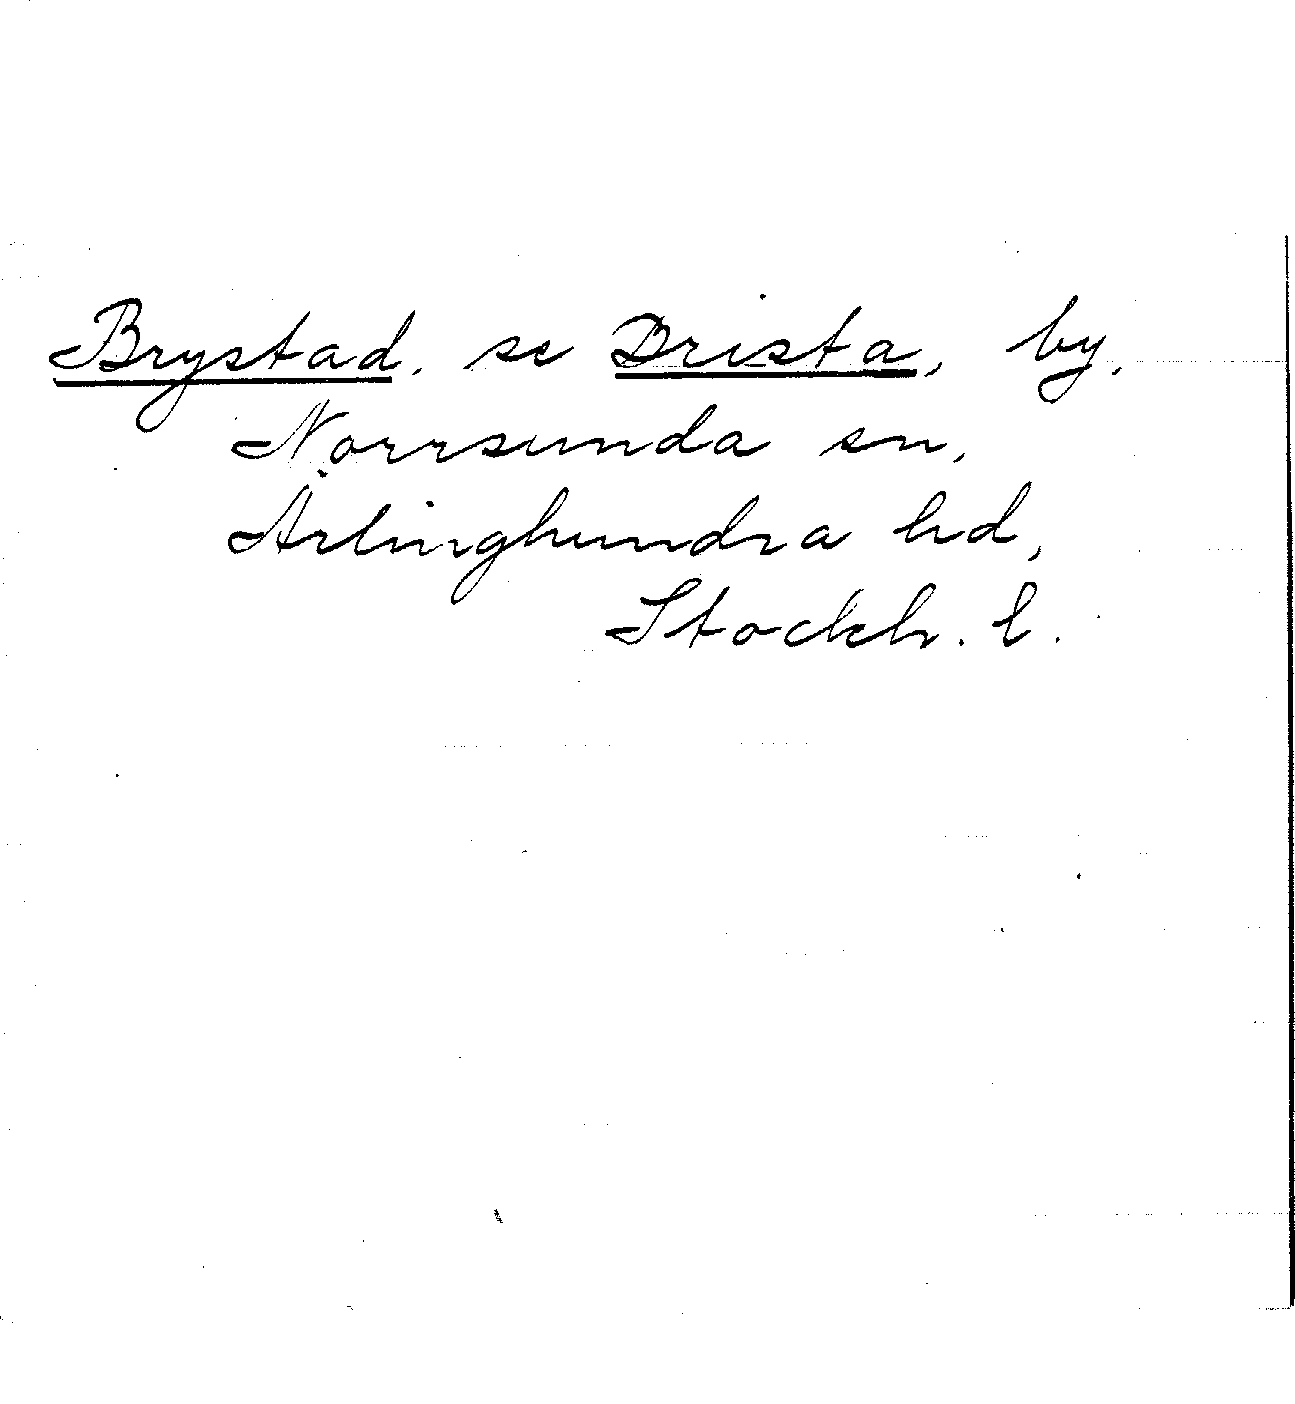 Brystad, se Drista, by,
Norrsunda sn,
Ärlinghundra hd,
Stockh. l.